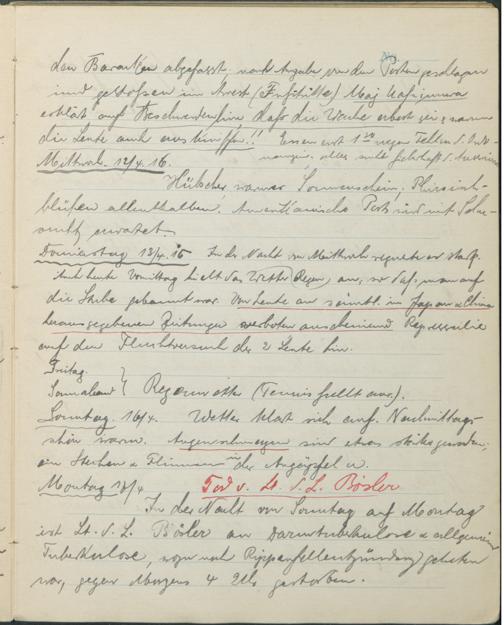 den Baracken abgefasst, nach Angabe von den Posten geschlagen
und gestossen im Arrest (Fusstritte) Maj.
erklärt auf Beschwerden hin dass die Wache sei, warum
die Leute auch auskniffen!! Essen erst 1 30 wegen Fehlen d.
Mittwoch. 12/4. 16. alles
Hübscher, warmer Sonnenschein, Pfirsich-
blüten allenthalben. Amerikanische Post wird mit Sehn-
sucht erwartet.
Donnerstag 13/4. 16 In der Nacht von Mittwoch regnete es stark.
heute Vormittag hielt das Wetter (Regen) an, so dass man auf
die Stube gebannt war. Von heute an sämmtl. in Japan u. China
herausgegebenen Zeitungen verboten anscheinend Repressalie
auf den Fluchtversuch der 2 Leute hin.
Freitag.
Sonnabend } Regenwetter (Tennis fällt aus).
Sonntag. 16/4. Wetter klärt sich auf. Nachmittags
schön warm. Augenschmerzen sind etwas stärker geworden,
ein Stechen u. Flimmern der Augäpfel
Montag 17/4 Tod v. Lt. d. L. Bösler
In der Nacht von Sonntag auf Montag
ist Lt. d. L. Bösler an Darmtuberkulose u. allgemeiner
Tuberkulose, wozu noch Rippenfellentzündung getreten
war, gegen Morgens 4 Uhr gestorben.